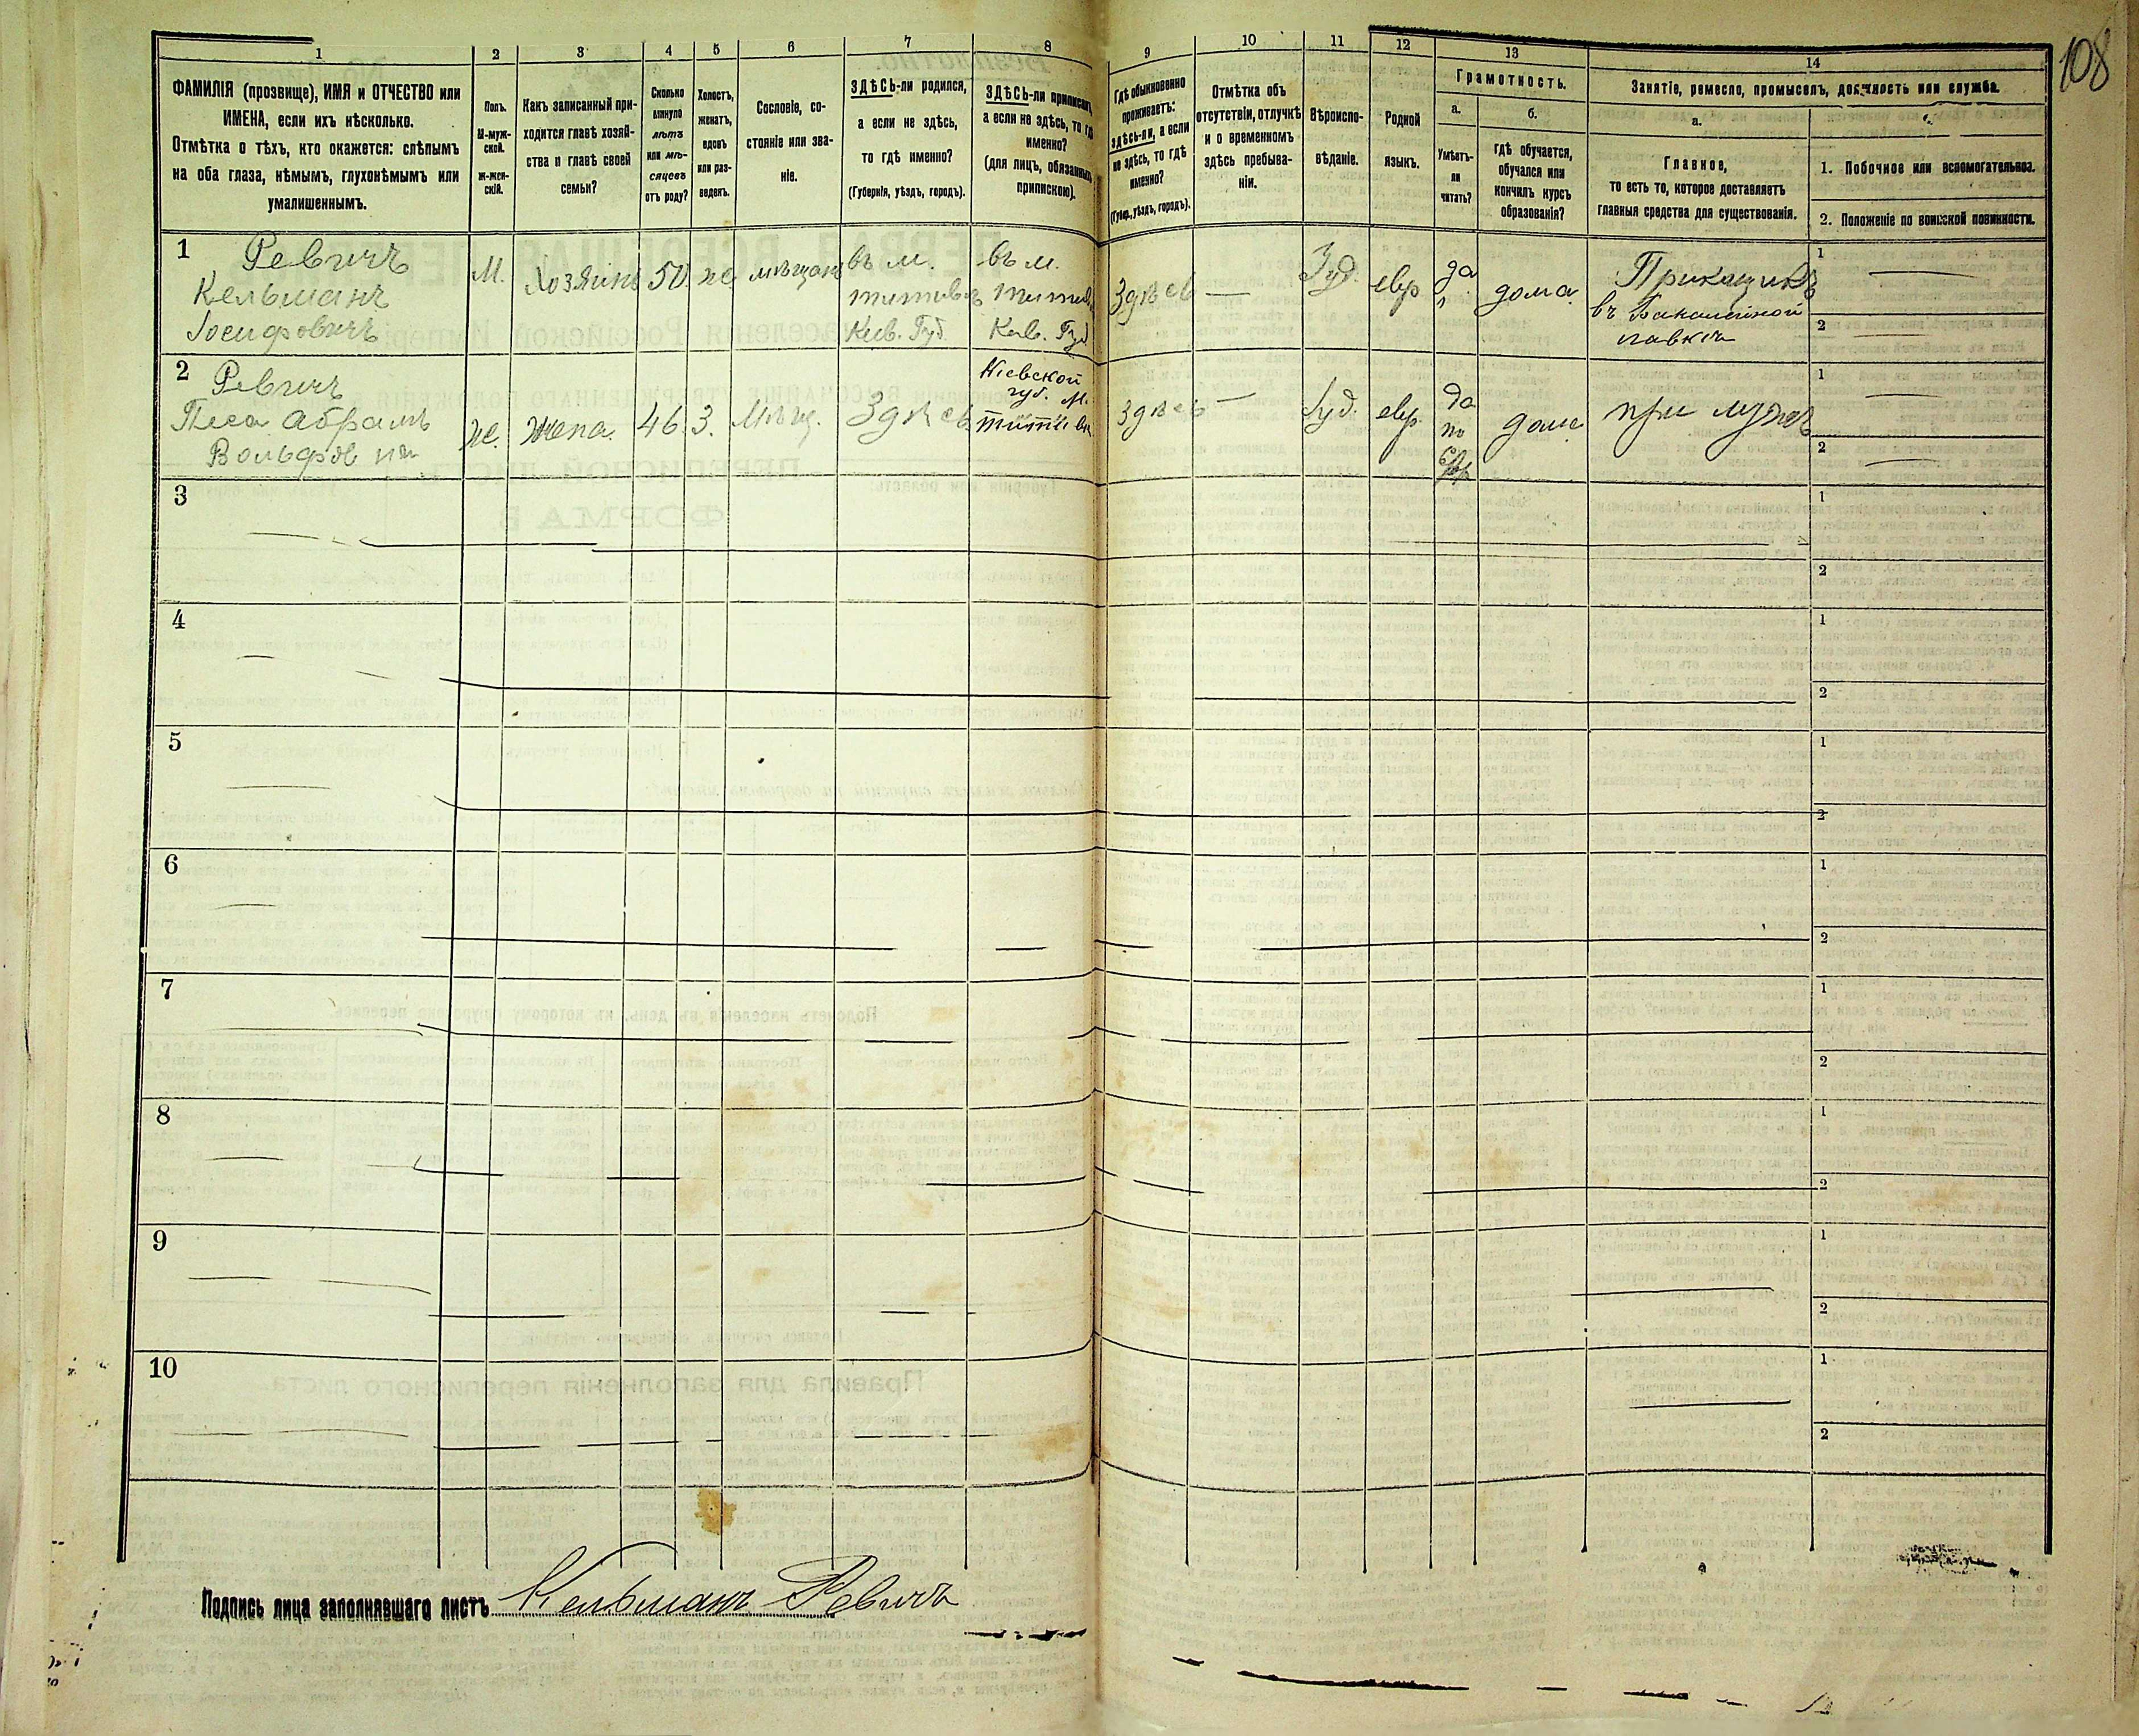 108
1
2
3
4
5
6
7
8
9
10
11
12
13
14
ФАМИЛІЯ (прозвище), ИМЯ и ОТЧЕСТВО или
ИМЕНА, если ихъ нѣсколько.
Отмѣтка о тѣхъ, кто окажется: слѣпымъ
на оба глаза, нѣмымъ, глухонѣмымъ или
умалишеннымъ.
Полъ.
М-муж-
ской.
ж-жен-
скій.
Какъ записанный при-
ходится главѣ хозяй-
ства и главѣ своей
семьи?
Сколько
минуло
лѣтъ
или мѣ-
сяцевъ
отъ роду?
Холостъ,
женатъ,
вдовъ
или раз-
веденъ.
Сословіе, со-
стояніе или зва-
ніе.
ЗДѢСЬ-ли родился,
а если не здѣсь,
то гдѣ именно?
(Губернія, уѣздъ, городъ).
ЗДѢСЬ-ли приписанъ,
а если не здѣсь, то гдѣ
именно?
(для лицъ, обязанныхъ
припискою).
Гдѣ обыкновенно
проживаетъ:
здѣсь-ли, а если
не здѣсь, то гдѣ
именно?
(Губер., уѣздъ, городъ).
Отмѣтка объ
отсутствіи, отлучкѣ
и о временномъ
здѣсь пребыва-
ніи.
Вѣроиспо-
вѣданіе.
Родной
языкъ.
Грамотность.
а.
Умѣетъ-
ли
читать?
б.
гдѣ обучается,
обучался или
кончилъ курсъ
образованія?
Занятіе, ремесло, промыселъ, должность или служба.
а.
Главное,
то есть то, которое доставляетъ
главныя средства для существованія.
1. Побочное или вспомогательное.
2. Положеніе по воинской повинности.
1
Ревичъ
Кельманъ
Іосифовичъ
М.
Хозяинъ
50
же
въ м.
Кіев. Губ.
въ м.
Кіев. Губ.
Здѣсь
—
Іуд.
евр
да
дома
Прикащикъ
въ Бакалейной
лавкѣ
1
2
2
Ревичъ
Песа Абрамъ
Вольфовна
же.
жена.
46
З.
Мѣщ.
Здѣсь
Кіевской
губ. м.
Здѣсь
—
Іуд.
евр
да
по
евр
дома
при мужѣ
1
2
3
1
2
4
1
2
5
1
2
6
1
2
7
1
2
8
1
2
9
1
2
10
1
2
Подпись лица заполнявшаго листъ Кельманъ Ревичъ